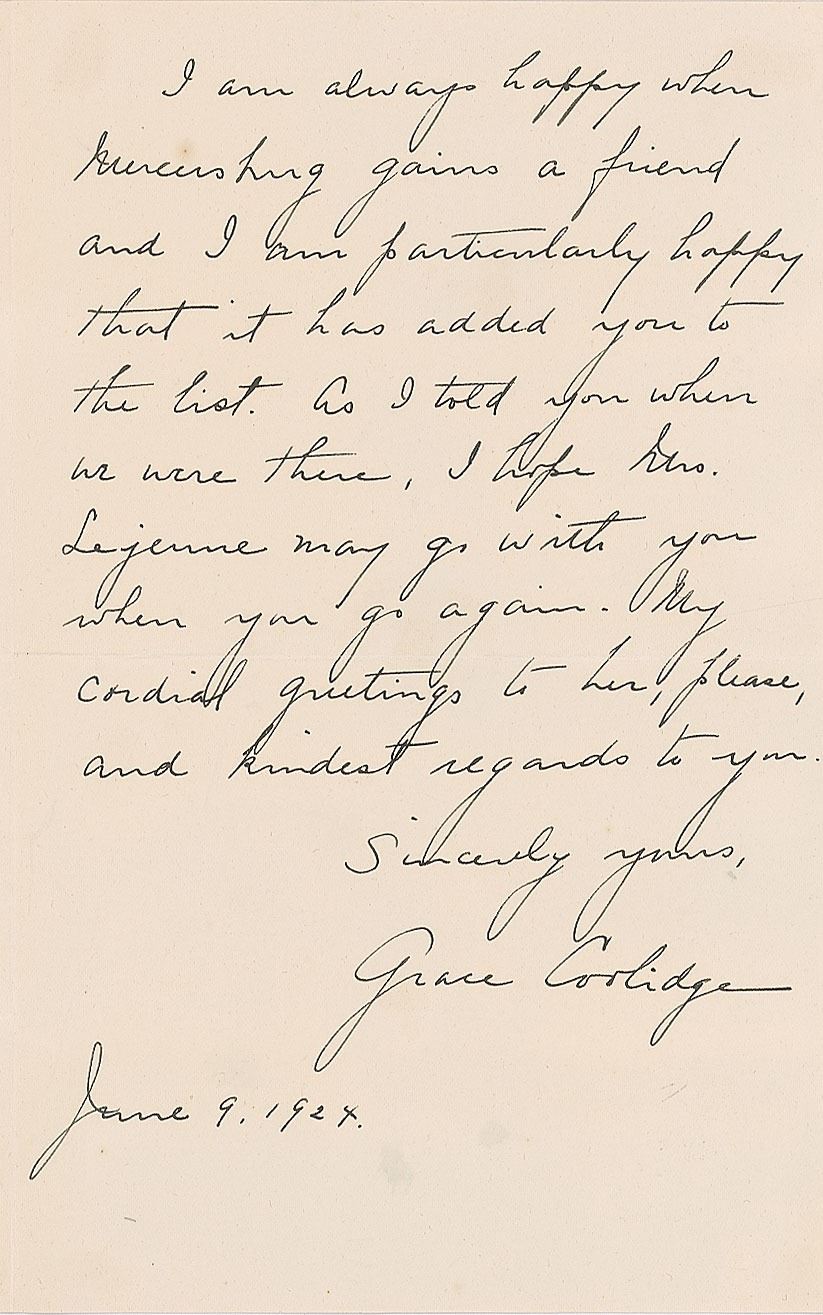 I am always happy when
Mercersburg gains a friend
and I am particularly happy
that it has added you to
the list. As I told you when
we were there, I hope Mrs.
Lejeune may go with you
when you go again. My
cordial greetings to her, please,
and kindest regards to you.
Sincerely yours,
Grace Coolidge
June 9. 1924.